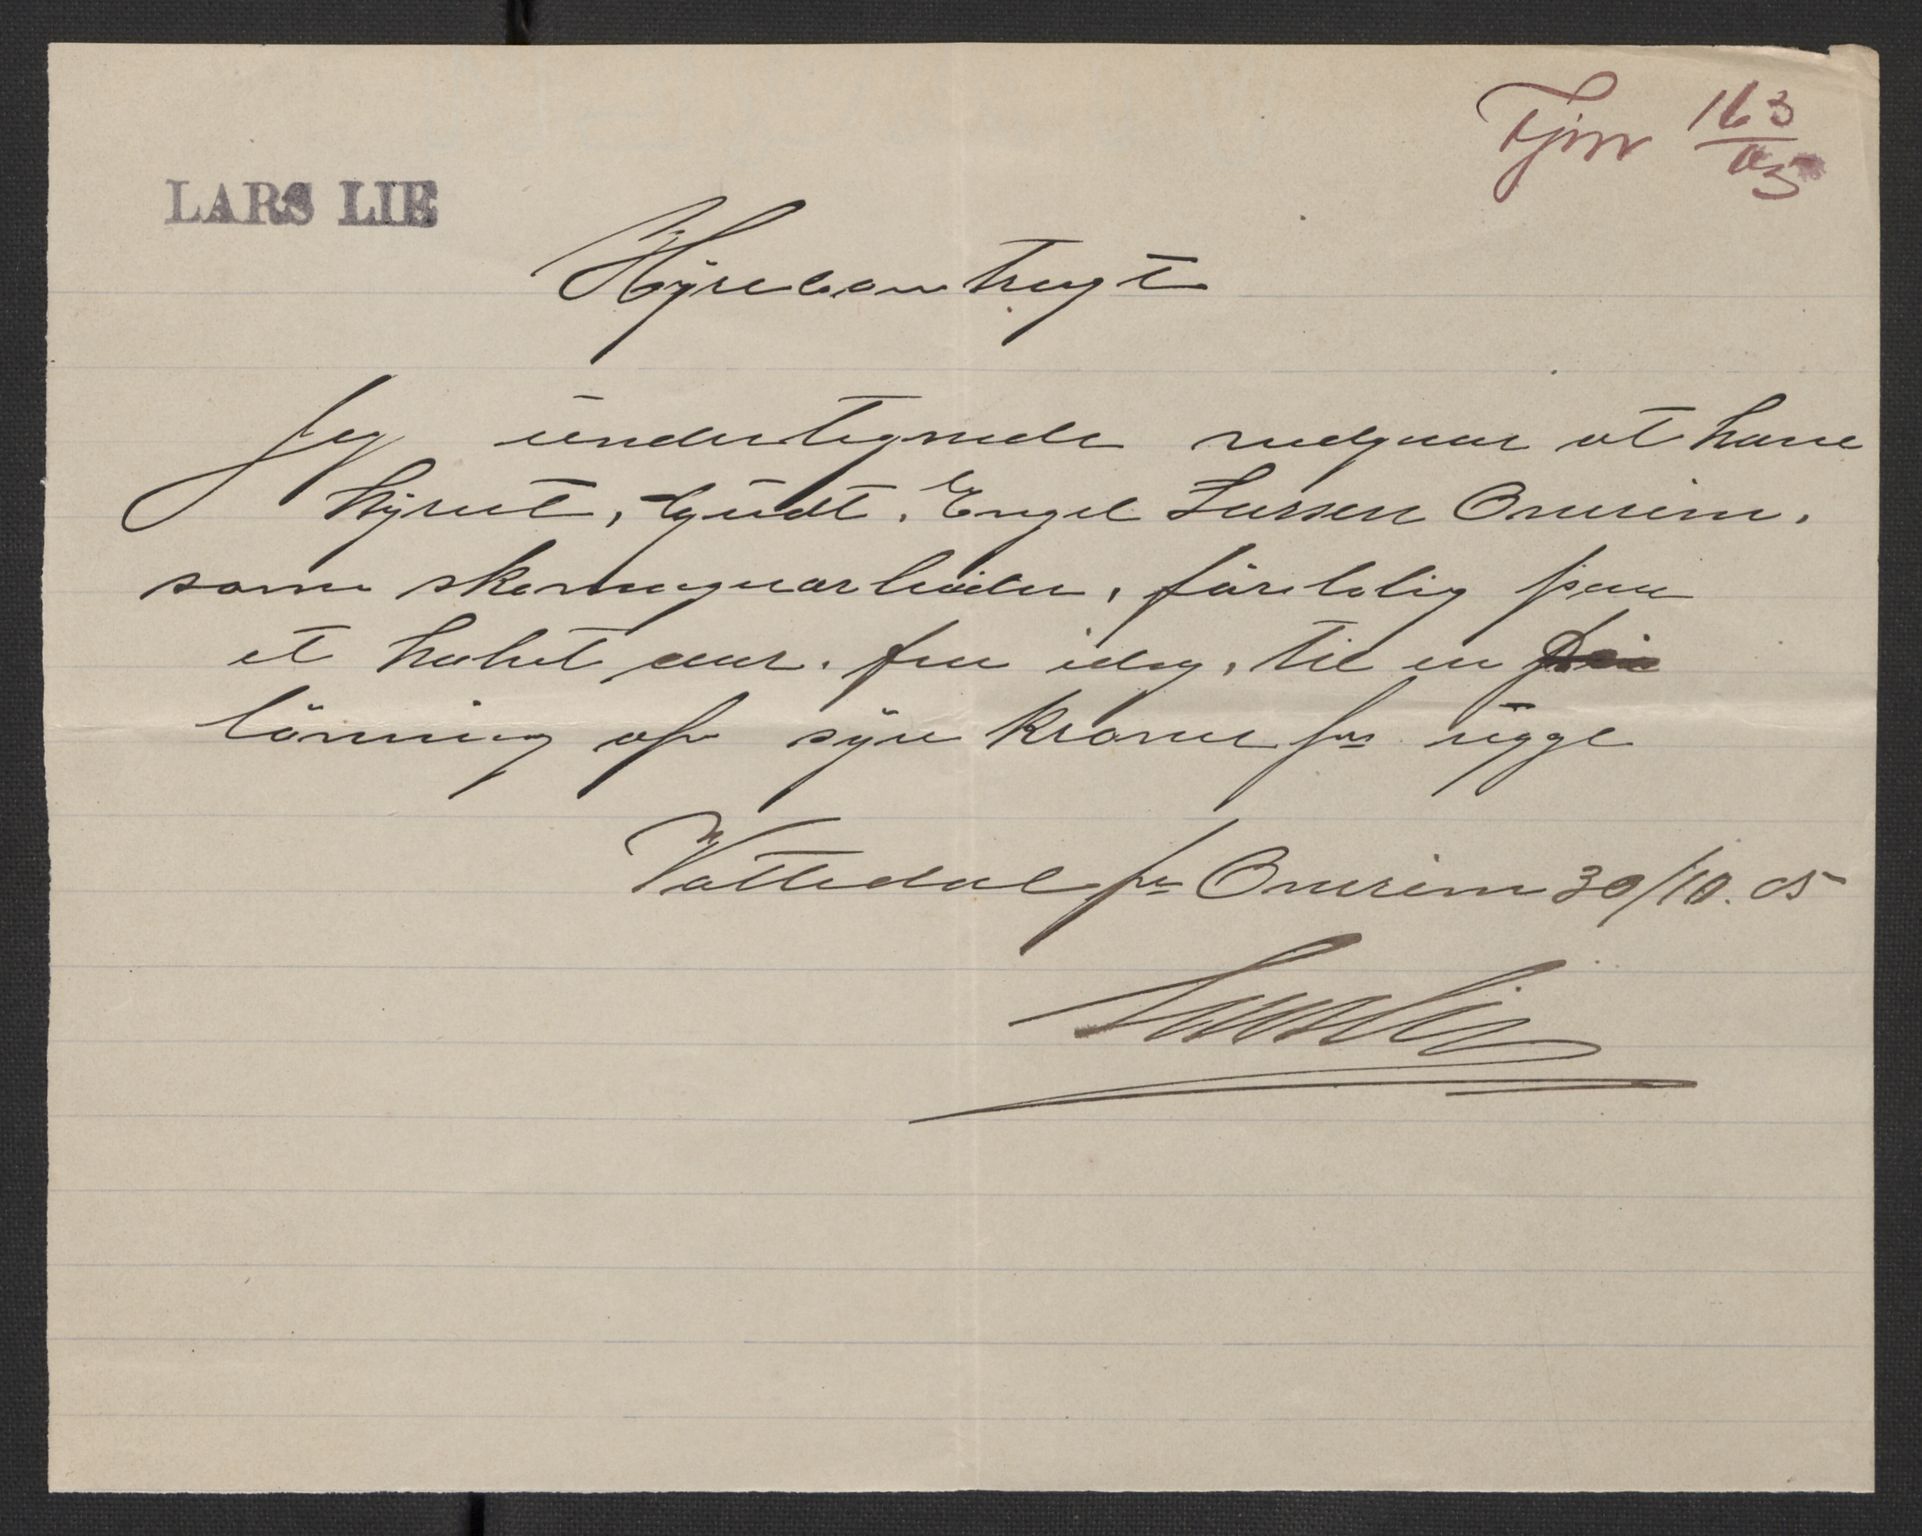 Tjnr 163/05
LARS LIE
Hyrecontragt
Jeg undertegnede vedgaar at have
hyret, Gudt. Engel Larsen Onerim.
som skomagerarbeider, föreldig paa
et halvt aar. fra idag, til en
lönning af syv kroner pr ugge
Vattedal pr Onerim 30/10. 05
Lars Lie